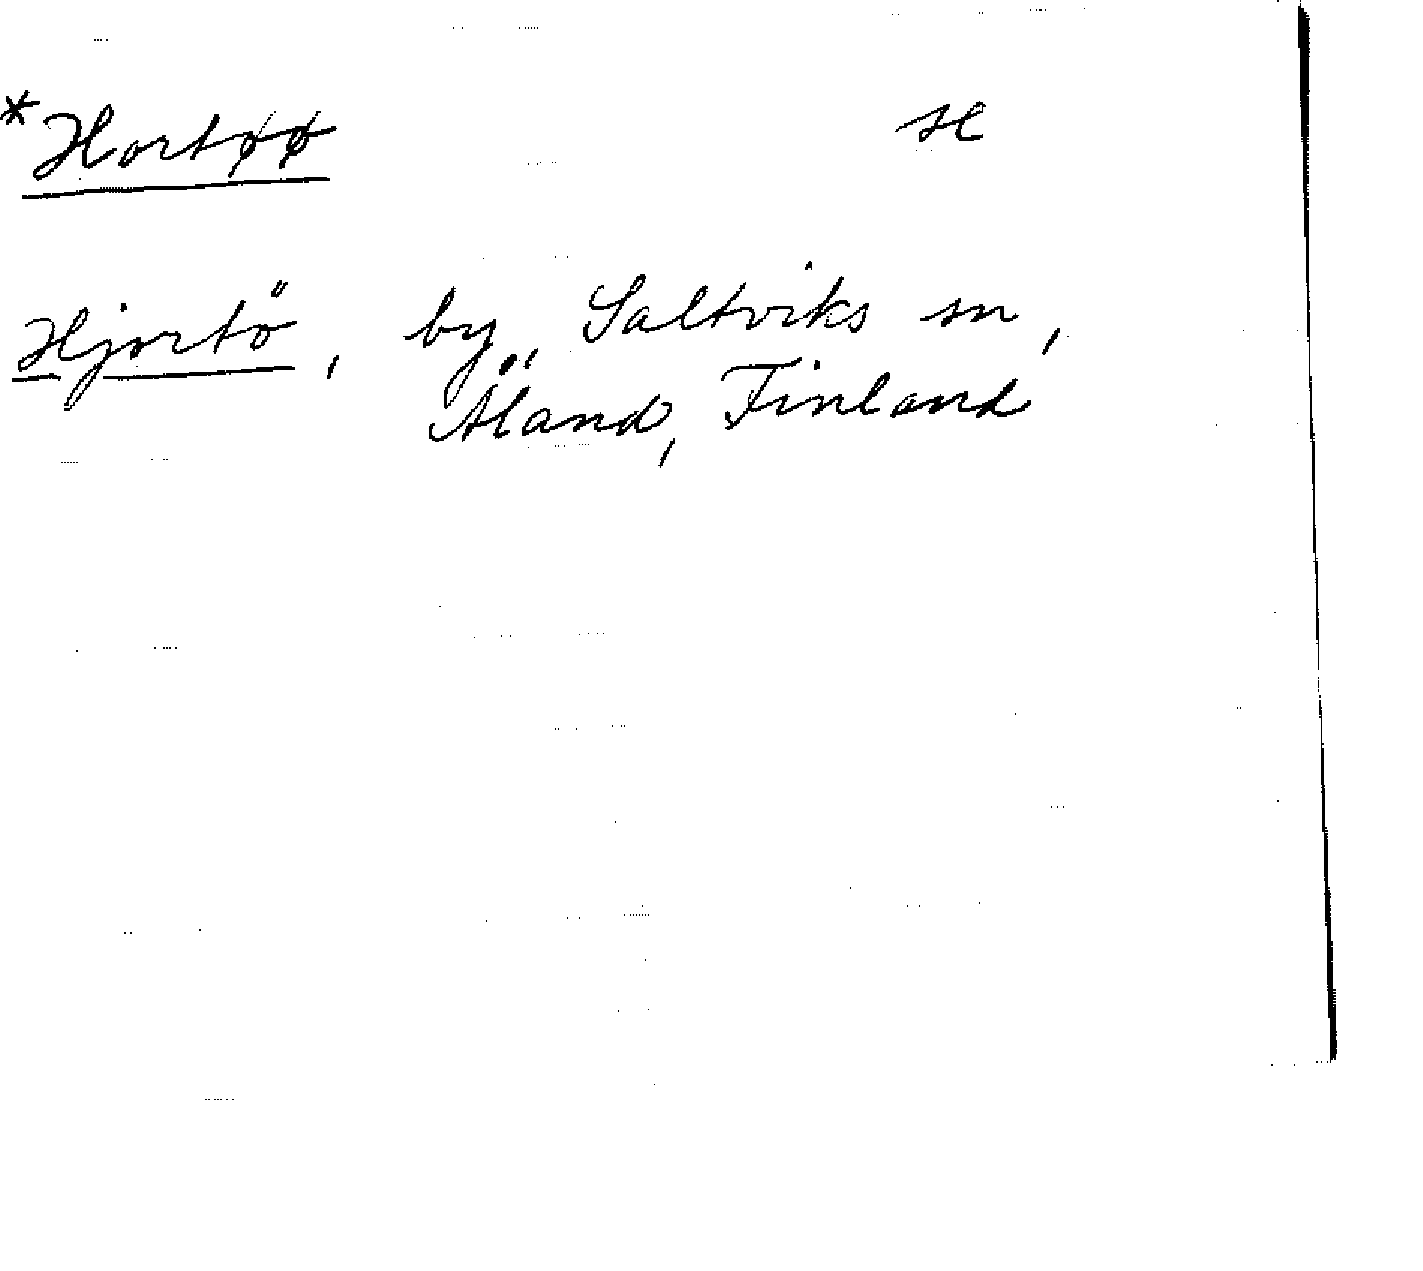 *Hortøø
Hjortö, by, Saltviks sn,
Åland, Finland